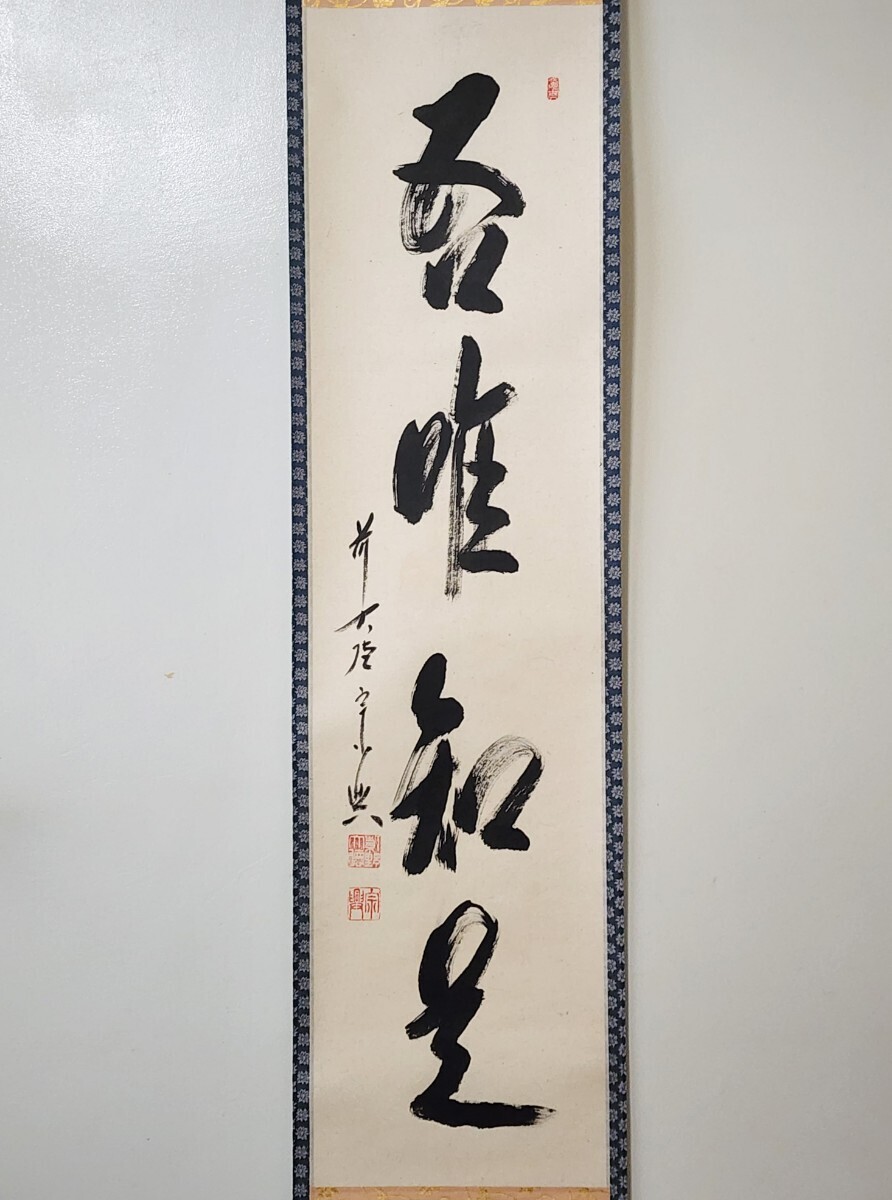 吾唯知足
前大徳宗典